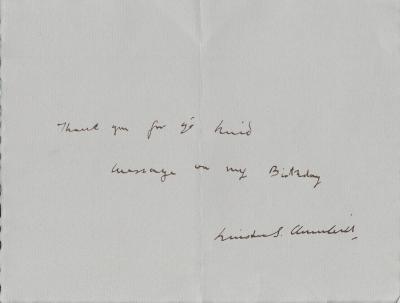 Thank you for yr kind
message on my Birthday
Winston S. Churchill